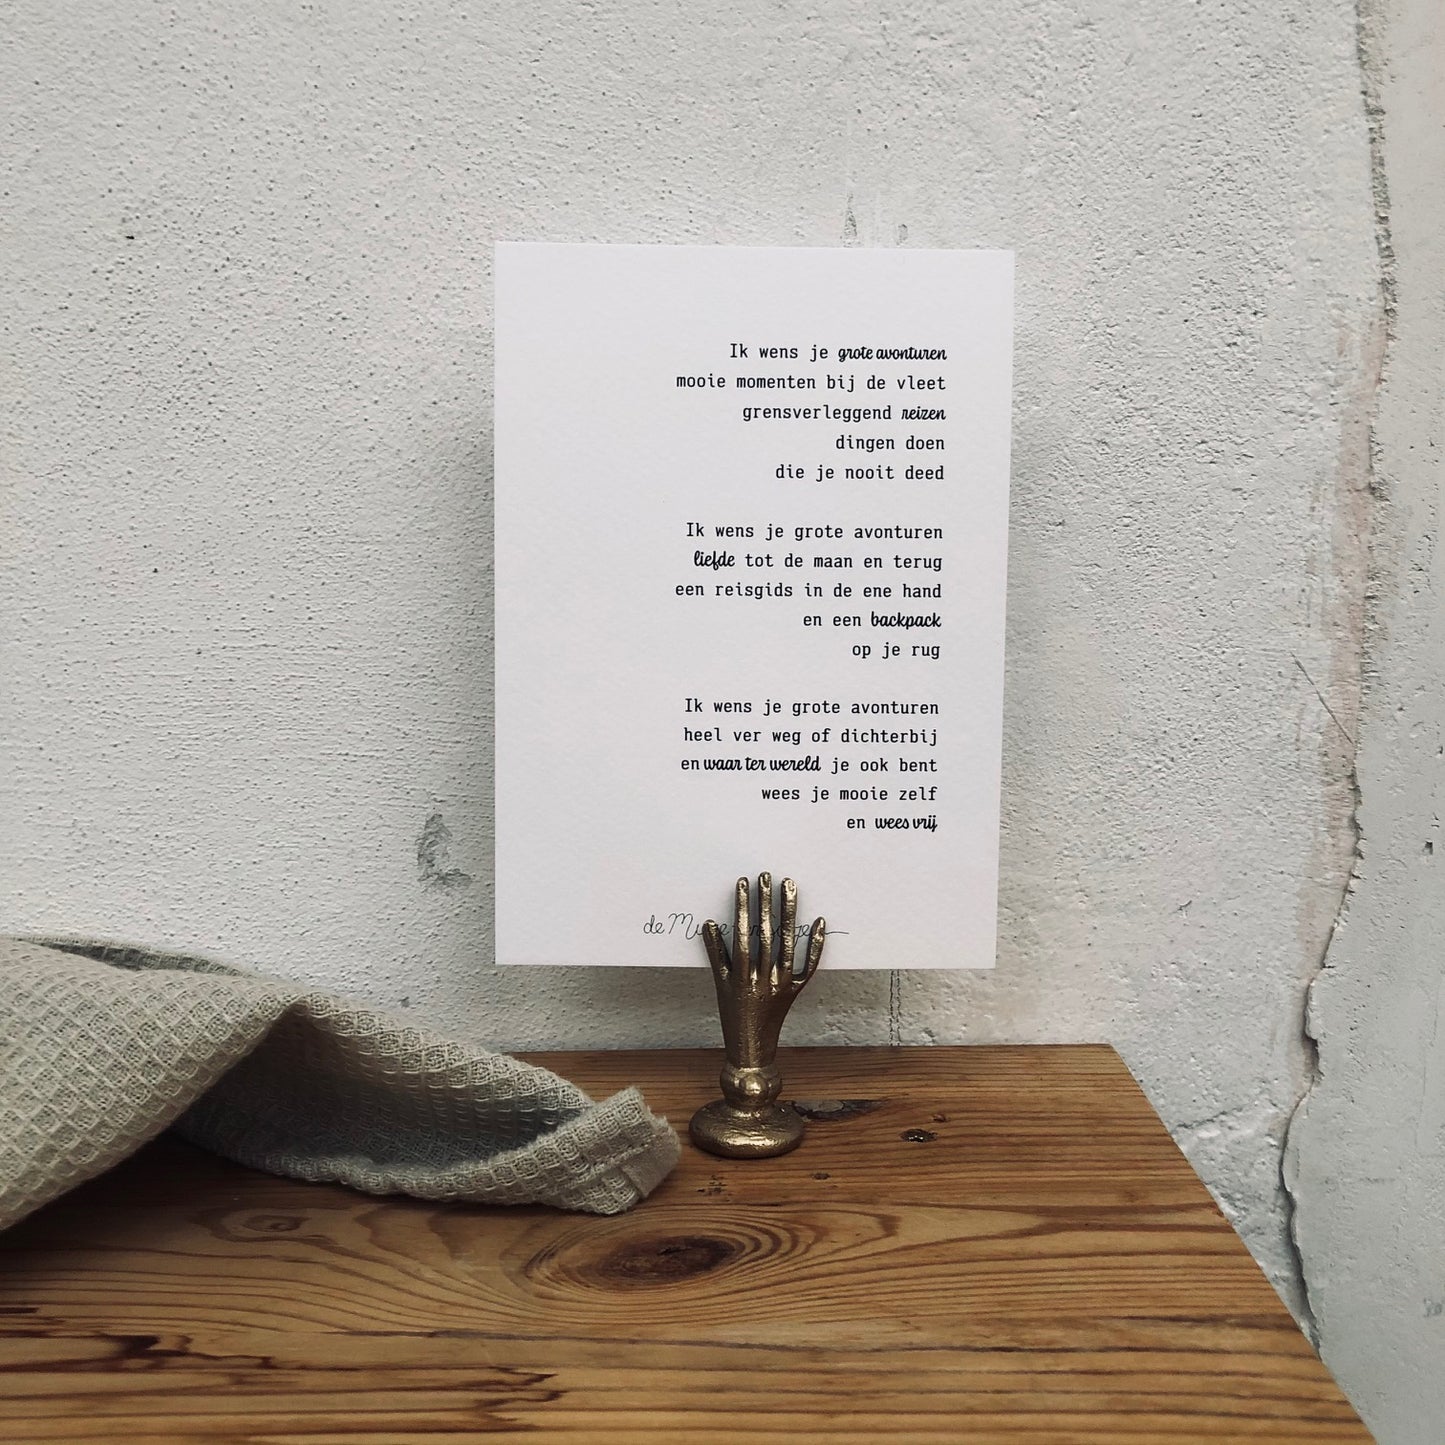 Ik wens je grote avonturen
mooie momenten bij de vleet
grensverleggend reizen
dingen doen
die je nooit deed
Ik wens je grote avonturen
liefde tot de maan en terug
een reisgids in de ene hand
en een backpack
op je rug
Ik wens je grote avonturen
heel ver weg of dichterbij
en waar ter wereld je ook bent
wees je mooie zelf
en wees vrij
de